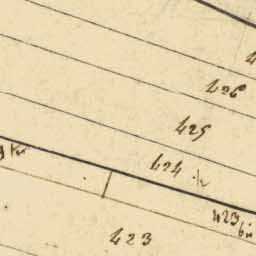 426
425
424
423 bis
423